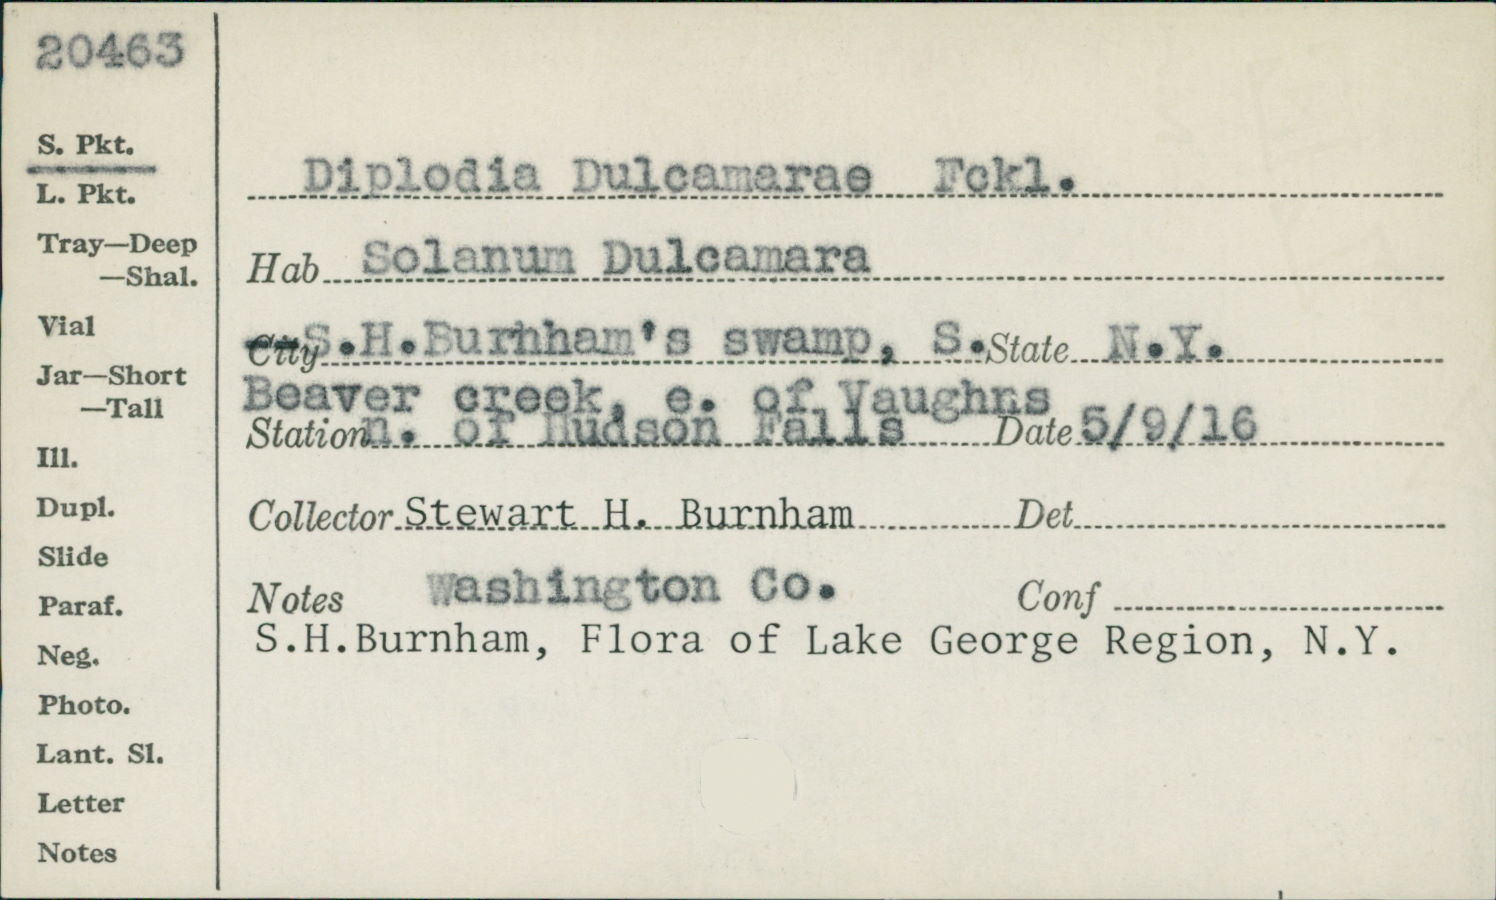 20463
S. Pkt.
L. Pkt.
Tray—Deep
—Shal.
Vial
Jar—Short
—Tall
Ill.
Dupl.
Slide
Paraf.
Neg.
Photo.
Lant. Sl.
Letter
Notes
Diplodia Dulcamarae Fckl.
Hab Solanum Dulcamara
City S.H.Burnham's swamp, S. State N.Y.
Beaver creek, e. of Vaughns
Station n. of Hudson Falls Date 5/9/16
Collector Stewart H. Burnham Det
Notes Washington Co. Conf
S.H.Burnham, Flora of Lake George Region, N.Y.